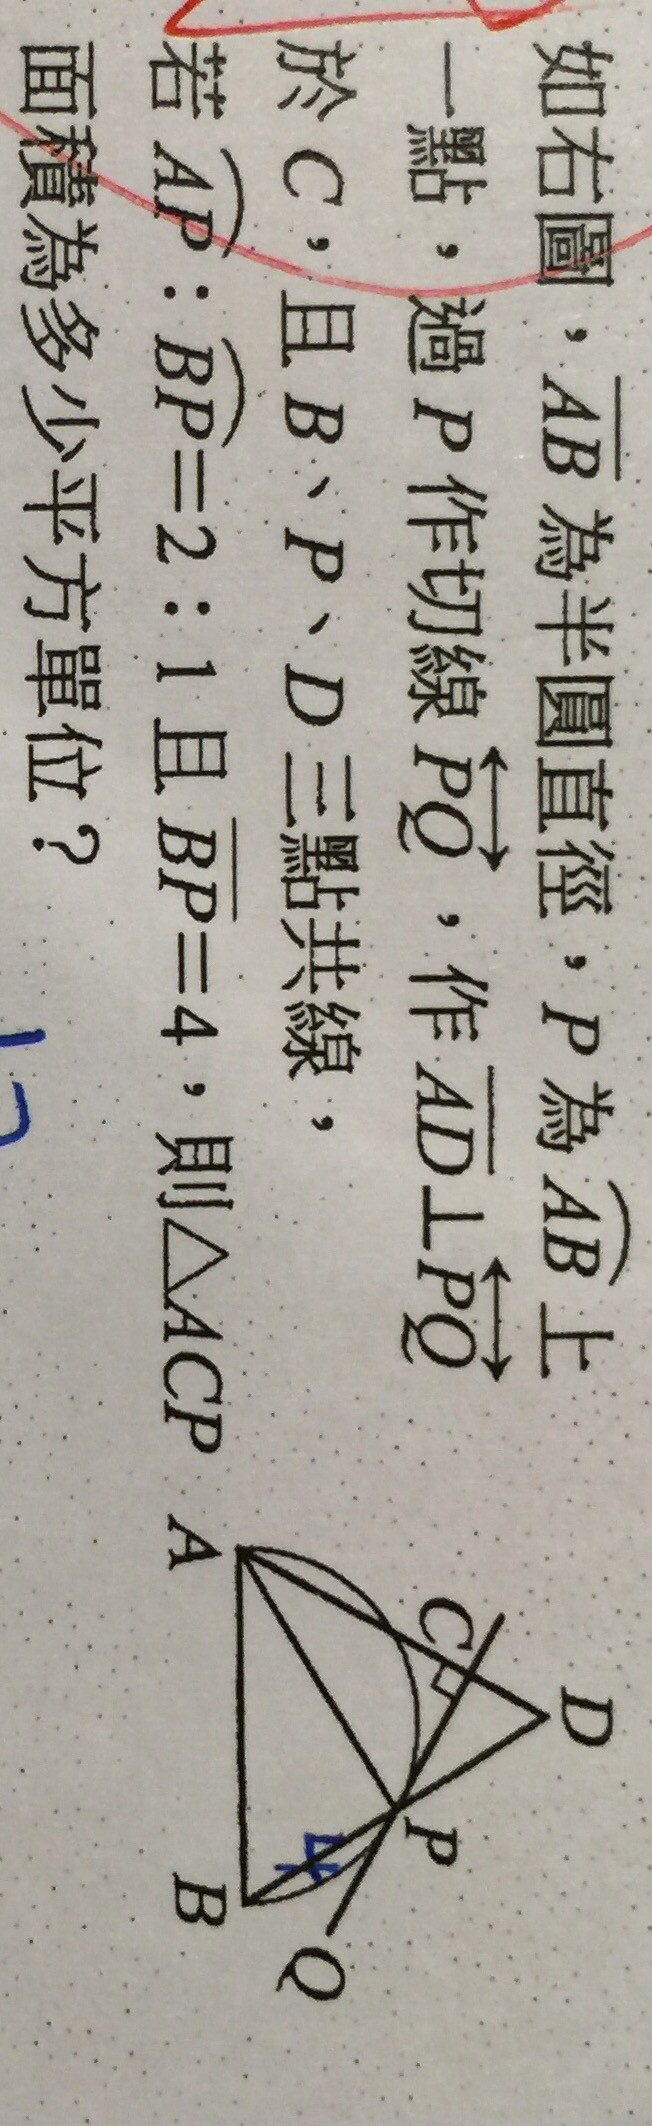 如右圖，AB 為半圓直徑，P 為 AB 上
一點，過 P 作切線 PQ，作 AD⊥PQ
於 C，且 B、P、D 三點共線，
若 AP：BP=2：1 且 BP=4，則△ACP
面積為多少平方單位？
D
C
P
4
A
B
Q